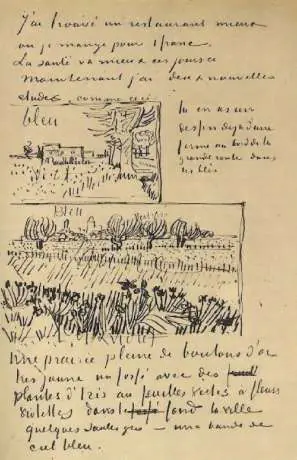 J'ai trouvé un restaurant mieux
ou je mange pour 1 franc.
La santé va mieux ces jours ci
Maintenant j'ai deux nouvelles
études comme ceci
bleu
tu en as un
dessin deja d'une
ferme au bord de la
grande route dans
les blés
Bleu
Une prairie pleine de boutons d'or
tres jaune un fossé avec des
plantes d'iris au feuilles vertes à fleurs
violettes dans le fond la ville
quelques saules gris – une bande de
ciel bleu.